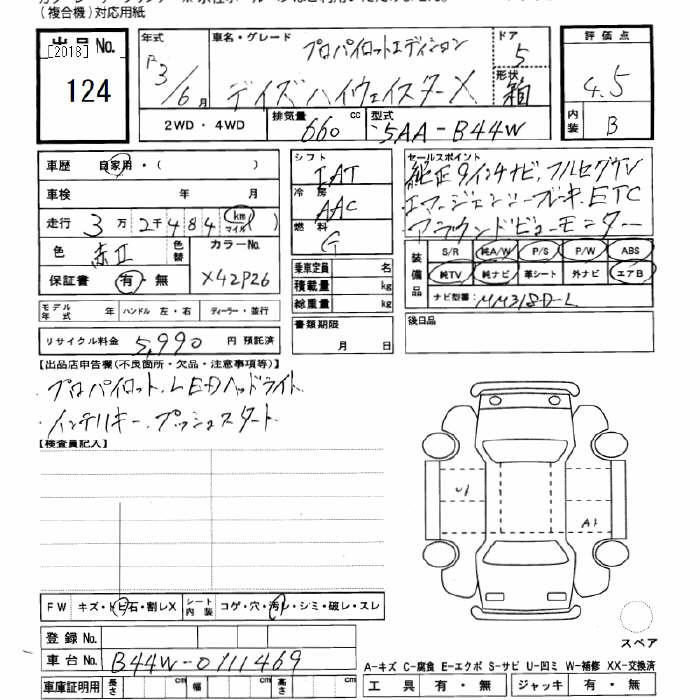 (複合機)対応用紙
出品 No. [2018]
124
年式 R3/6月
車名・グレード プロパイロットエディション
デイズ ハイウェイスターX
ドア 5
形状 箱
評価点 4.5
内装 B
2WD・4WD
排気量 660 cc
型式 5AA-B44W
車歴 自家用・( )
車検 年 月
走行 3万2千484 km マイル ( )
色 赤II 色替
カラーNo. X42P26
保証書 有・無
シフト IAT
冷房 AAC
燃料 G
乗車定員 名
積載量 kg
総重量 kg
セールスポイント
純正9インチナビ.フルセグTV
エマージェンシーブレーキ.ETC
アラウンドビューモニター
装備品 S/R 純A/W P/S P/W ABS
純TV 純ナビ 革シート 外ナビ エアB
ナビ型番: MM318D-L
モデル年式 年 ハンドル 左・右 ディーラー・並行
書類期限 月 日
後日品
リサイクル料金 5,990 円 預託済
【出品店申告欄(不良箇所・欠品・注意事項等)】
・プロパイロット.LEDヘッドライト
・インテリキー.プッシュスタート
【検査員記入】
U1
A1
FW キズ・トビ石・割レX
シート内装 コゲ・穴・汚レ・シミ・破レ・スレ
登録 No.
車台 No. B44W-0111469
車庫証明用 長さ cm 幅 cm 高さ cm
スペア
A-キズ C-腐食 E-エクボ S-サビ U-凹ミ W-補修 XX-交換済
工具 有・無 ジャッキ 有・無